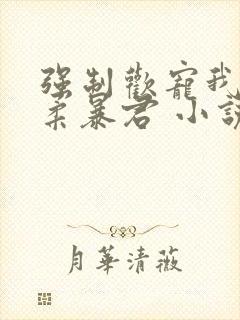 强制歡寵我
柔暴君 小說
月華清薇